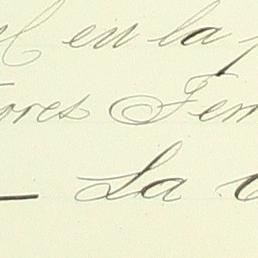 en la
ores Fer
— La